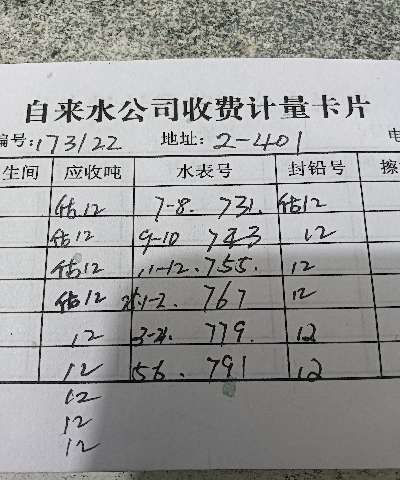 自来水公司收费计量卡片
编号:173122 地址:2-401 电
生间 应收吨 水表号 封铅号 擦
估12 7-8. 731. 估12
估12 9-10 743 12
估12 11-12. 755. 12
估12 1-2. 767 12
12 3-4. 779. 12
12 5-6. 791 12
12
12
12